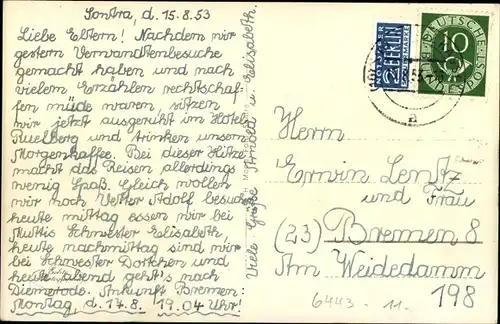 Sontra, d. 15.8.53
Liebe Eltern! Nachdem wir
gestern Verwandtenbesuche
gemacht haben und nach
vielem Erzählen rechtschaf-
fen müde waren, sitzen
wir jetzt ausgeruht im Hotel
und trinken unsern
Morgenkaffee. Bei dieser Hitze
macht das Reisen allerdings
wenig Spaß. Gleich wollen
wir noch Vetter Adolf besuchen
heute mittag essen wir bei
Muttis Schwester Elisabeth
heute nachmittag sind wir
bei Schwester Dortchen und
heute abend geht's nach
Diemerode. Ankunft Bremen:
Montag, d. 17.8. 19.04 Uhr!
Viele Grüße u. Elisabeth.
NOTOPFER
2 BERLIN
STEUERMARKE
DEUTSCHE
10
BUNDESPOST
a
Herrn
Erwin Lentz
und Frau
(23) Bremen 8
Am Weidedamm
198
6443 11